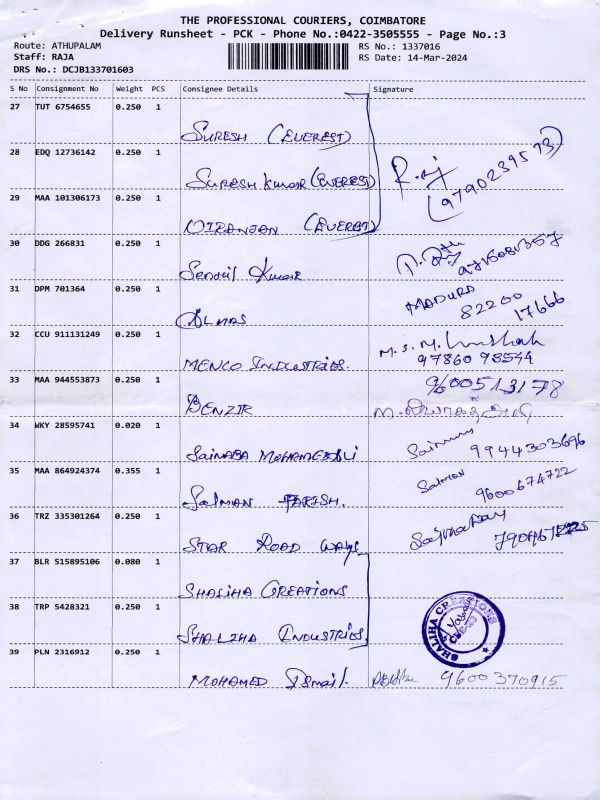 THE PROFESSIONAL COURIERS, COIMBATORE
Delivery Runsheet - PCK - Phone No.:0422-3505555 - Page No.:3
Route: ATHUPALAM
Staff: RAJA
DRS No.: DCJB133701603
RS No.: 1337016
RS Date: 14-Mar-2024
S No Consignment No Weight PCS Consignee Details Signature
27 TUT 6754655 0.250 1
SURESH (EVEREST)
28 EDQ 12736142 0.250 1
SURESH KUMAR (EVEREST)
(9790239573)
29 MAA 101306173 0.250 1
NIRANJAN (EVEREST)
30 DDG 266831 0.250 1
Senthil Kumar
31 DPM 701364 0.250 1
ALMAS MADURA 82200 17666
32 CCU 911131249 0.250 1
MENCO INDUSTRIES. M.S.M.
97860 98544
33 MAA 944553873 0.250 1 9600513178
BENZIR
34 WKY 28595741 0.020 1
SAINABA 9944303696
35 MAA 864924374 0.355 1
SALMAN FARISH. Salman 9600674722
36 TRZ 335301264 0.250 1
STAR ROAD WAYS
37 BLR 515895106 0.080 1
SHALIHA CREATIONS
38 TRP 5428321 0.250 1
SHALIHA INDUSTRIES.
SHALIHA CREATIONS
39 PLN 2316912 0.250 1
MOHAMED Ismail. 9600370915